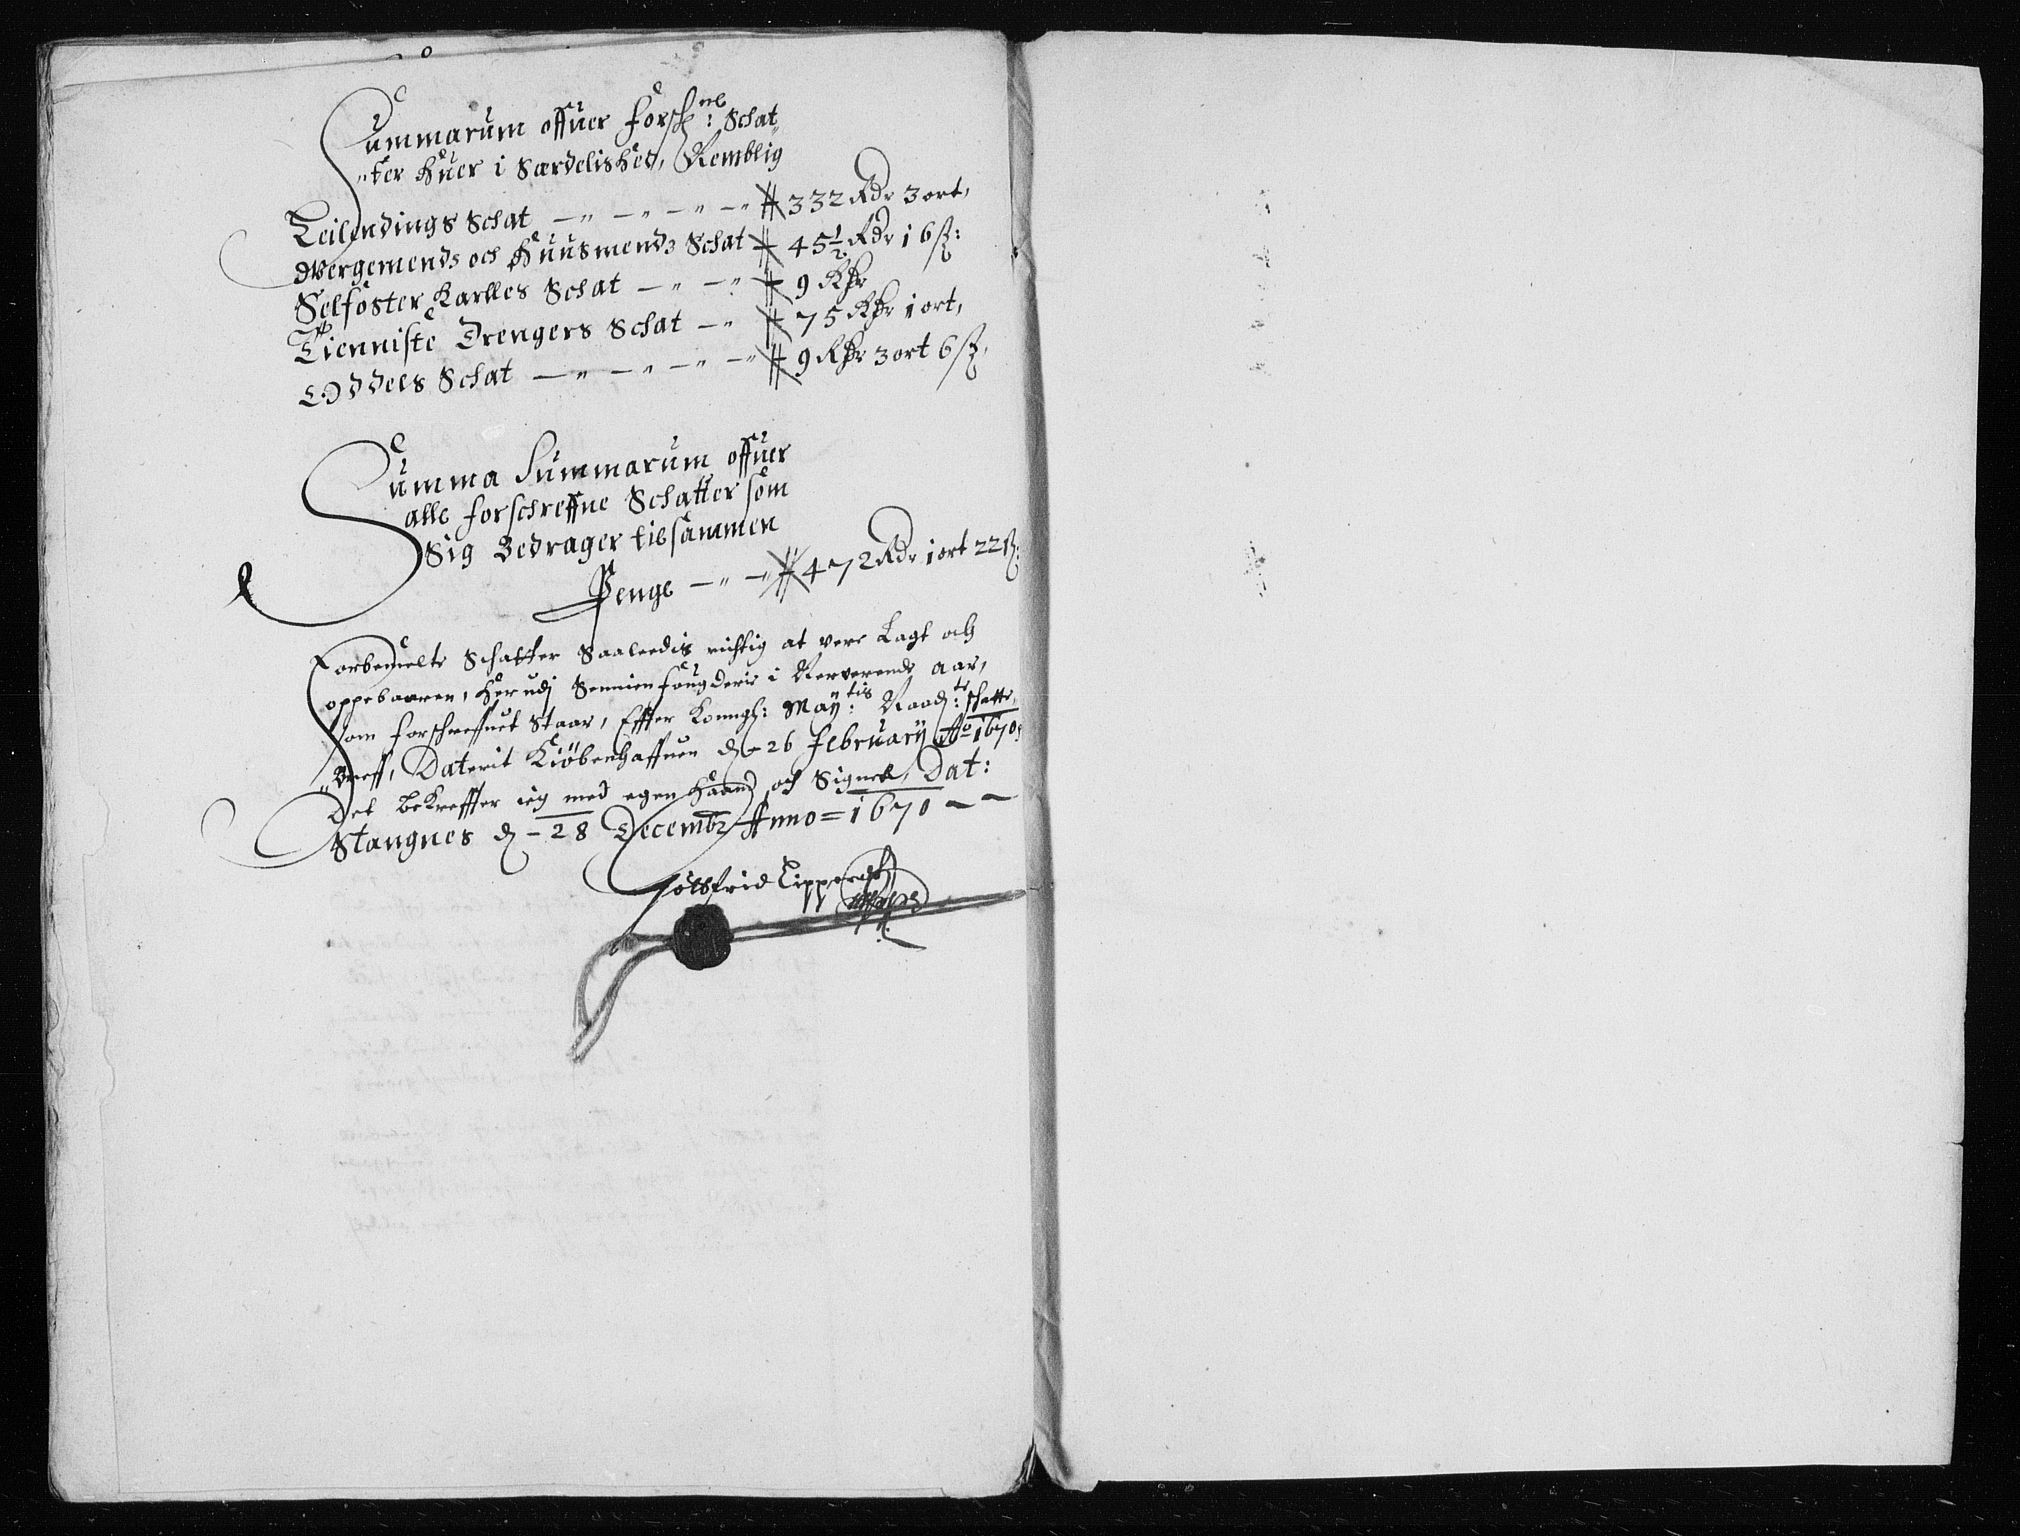 Summarum offuer forsch:ne Schat
„ter huer i Særdelished, Nemblig
Leilendings Schat — „ — „ — „ — „ 332 Rdr 3 ort,
Ødergemends och Huusmends Schat 45½ Rdr 16 ß:
Selfoster Karlles Schat — „ — „ 9 Rdr
Tienniste Drengers Schat — „ 75 Rdr 1 ort,
Oddels Schat — „ — „ — „ — „ 9 Rdr 3 ort 6 ß,
Summa Summarum offuer
alle forschreffne Schatter som
Sig Bedrager tilsammen
Penge — „ — „ 472 Rdr 1 ort 22 ß:
Forbemelte Schatter Saaleedis richtig at vere Lagt och
oppebaaren, Her udj Sennien fougderie i Nerverende aar,
som forschreffuet Staar, Effter Konngl: May:tis Naadi:te schatte
„Breff, Daterit Kiøbenhaffuen d. 26 february Ao 1670,
Det bekreffter ieg med egen Haand och Signete, Dat:
Stangnes d. 28 Decembr Anno = 1670 — —